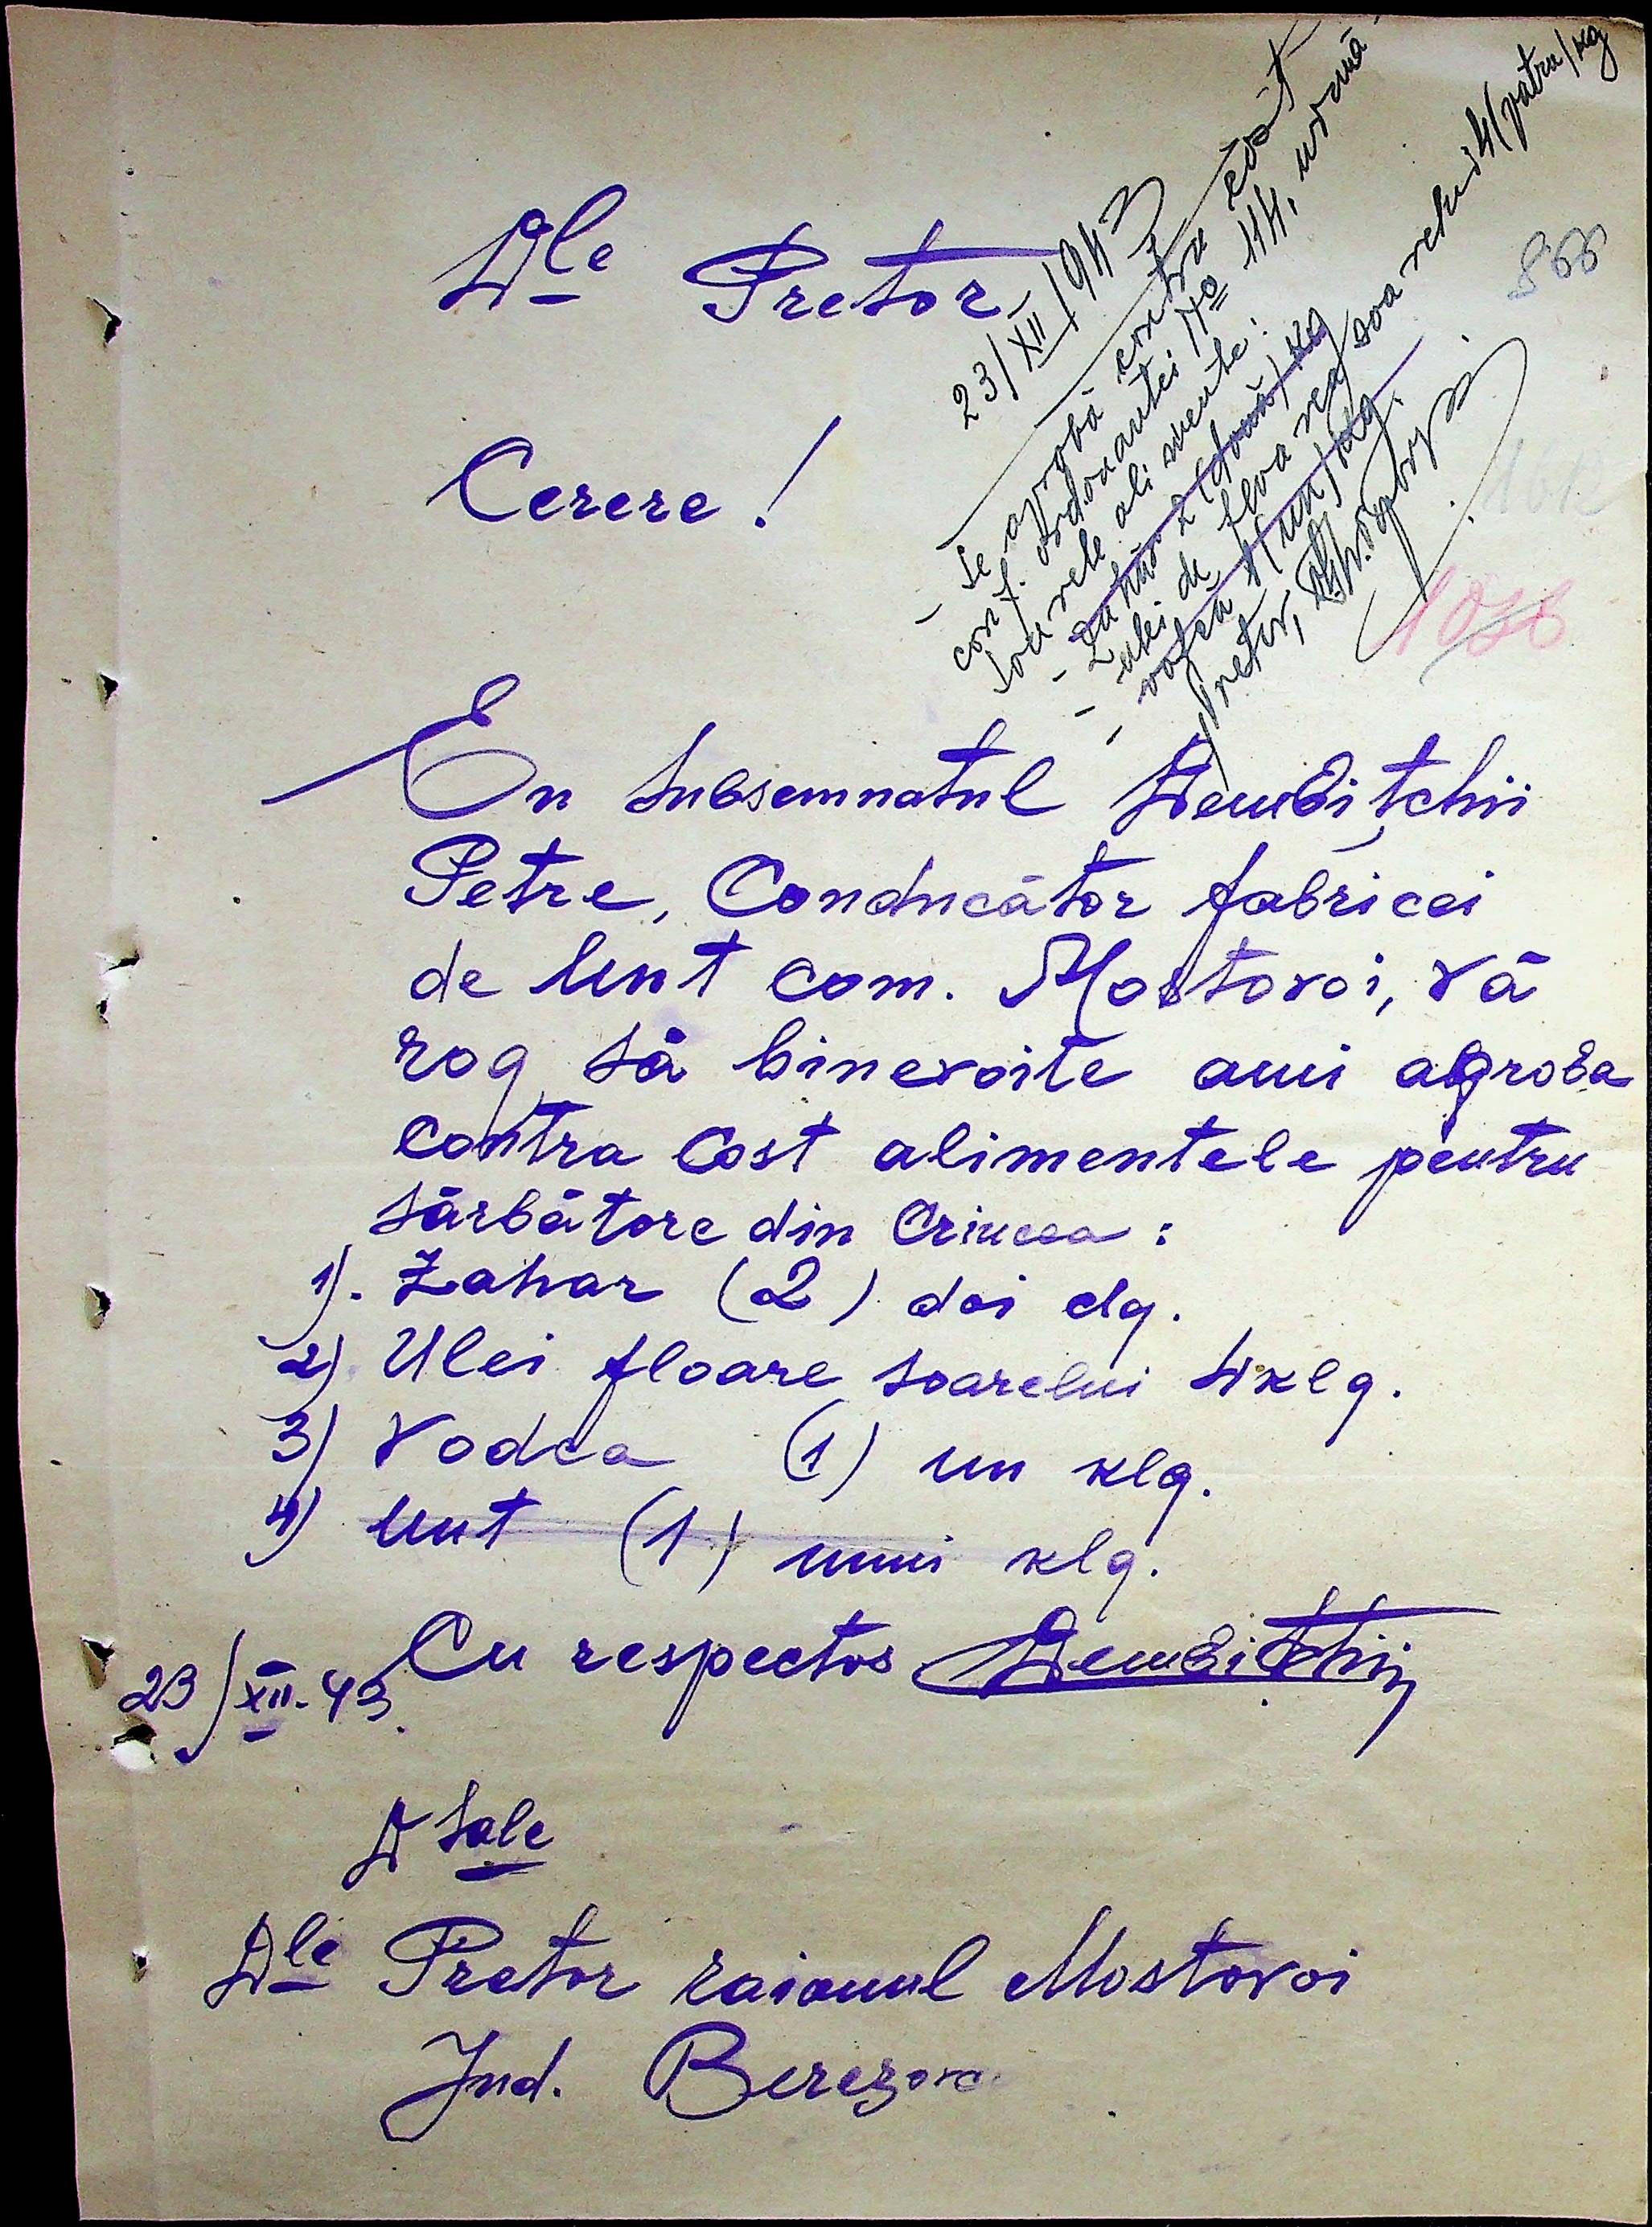 Dle Pretor
Cerere!
23/XII/943
- Se aprobă contra cost
conf. ordonantei No 114, urmă-
toarele alimente:
- Zahăr 2 (două) kg
- Ulei de floarea soarelui 4 (patru) kg
- votca 1 (un) kg.
Pretor,
868
1038
Eu subsemnatul Dembiţchii
Petre, Conducător fabricei
de Unt com. Mostovoi, vă
rog să binevoite ami aproba
contra Cost alimentele pentru
sărbătore din Criucea:
1). Zahar (2) doi clg.
2) Ulei floare soarelui 4 klg.
3) Vodca (1) un klg.
4) Unt (1) unui klg.
23/XII-43. Cu respectos Dembitchii
D Sale
Dle Pretor raionul Mostovoi
Jud. Berezovc